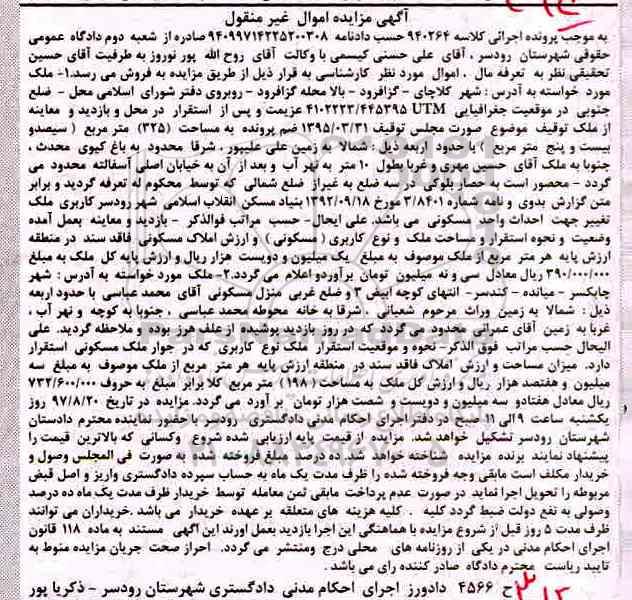 آگهی مزایده اموال غیر منقول
به موجب پرونده اجرائی کلاسه ۹۴۰۲۶۴ حسب دادنامه ۹۴۰۹۹۷۱۴۲۲۵۲۰۰۳۰۸ صادره از شعبه دوم دادگاه عمومی
حقوقی شهرستان رودسر ، آقای علی حسنی کیسمی با وکالت آقای روح الله پور نوروز به طرفیت آقای حسین
تحقیقی نظر به تعرفه مال ، اموال مورد نظر کارشناسی به قرار ذیل از طریق مزایده به فروش می رسد.۱- ملک
مورد خواسته به آدرس : شهر کلاچای - گزافرود - بالا محله گزافرود - روبروی دفتر شورای اسلامی محل - ضلع
جنوبی در موقعیت جغرافیایی UTM ۴۱۰۲۲۲۳/۴۴۵۳۹۵ عزیمت و پس از استقرار در محل و بازدید و معاینه
از ملک توقیف موضوع صورت مجلس توقیف ۱۳۹۵/۰۳/۳۱ ضم پرونده به مساحت (۳۲۵) متر مربع ( سیصدو
بیست و پنج متر مربع ) با حدود اربعه ذیل : شمالا به زمین علی علیپور ، شرقا محدود به باغ کیوی محدث ،
جنوبا به ملک آقای حسین مهری و غربا بطول ۱۰ متر به نهر آب و بعد از آن به خیابان اصلی آسفالته محدود می
گردد - محصور است به حصار بلوکی در سه ضلع به غیراز ضلع شمالی که توسط محکوم له تعرفه گردید و برابر
متن گزارش بدوی و نامه شماره ۳/۸۴۰۱ مورخ ۱۳۹۲/۰۹/۱۸ بنیاد مسکن انقلاب اسلامی شهر رودسر کاربری ملک
تغییر جهت احداث واحد مسکونی می باشد. علی ایحال- حسب مراتب فوالذکر - بازدید و معاینه بعمل آمده
وضعیت و نحوه استقرار و مساحت ملک و نوع کاربری ( مسکونی ) و ارزش املاک مسکونی فاقد سند در منطقه
ارزش پایه هر متر مربع از ملک موصوف به مبلغ یک میلیون و دویست هزار ریال و ارزش پایه کل ملک به مبلغ
۳۹۰/۰۰۰/۰۰۰ ریال معادل سی و نه میلیون تومان برآوردو اعلام می گردد.۲- ملک مورد خواسته به آدرس : شهر
چابکسر - میانده - کندسر- انتهای کوچه ابیض ۳ و ضلع غربی منزل مسکونی آقای محمد عباسی با حدود اربعه
ذیل : شمالا به زمین وراث مرحوم شعبانی . شرقا به خانه محوطه محمد عباسی ، جنوبا به کوچه و نهر آب ،
غربا به زمین آقای عمرانی محدود می گردد که در روز بازدید پوشیده از علف هرز بوده و ملاحظه گردید. علی
الیحال حسب مراتب فوق الذکر- نحوه و موقعیت استقرار ملک نوع کاربری که در جوار ملک مسکونی استقرار
دارد. میزان مساحت و ارزش املاک فاقد سند در منطقه ارزش پایه هر متر مربع از ملک موصوف به مبلغ سه
میلیون و هفتصد هزار ریال و ارزش کل ملک به مساحت ( ۱۹۸ ) متر مربع کلا برابر مبلغ به حروف ۷۳۲/۶۰۰/۰۰۰
ریال معادل هفتادو سه میلیون و دویست و شصت هزار تومان بر آورد می گردد. مزایده در تاریخ ۹۷/۸/۲۰ روز
یکشنبه ساعت ۹ الی ۱۱ صبح در دفتر اجرای احکام مدنی دادگستری رودسر با حضور نماینده محترم دادستان
شهرستان رودسر تشکیل خواهد شد. مزایده از قیمت پایه ارزیابی شده شروع وکسانی که بالاترین قیمت را
پیشنهاد نمایند برنده مزایده شناخته خواهد شد. ده درصد مبلغ فروخته شده به صورت فی المجلس وصول و
خریدار مکلف است مابقی وجه فروخته شده را ظرف مدت یک ماه به حساب سپرده دادگستری واریز و اصل قبض
مربوطه را تحویل اجرا نماید در صورت عدم پرداخت مابقی ثمن معامله توسط خریدار ظرف مدت یک ماه ده درصد
وصولی به نفع دولت ضبط گردد کلیه . کلیه هزینه های متعلقه بر عهده خریدار می باشد .خریداران می توانند
ظرف مدت ۵ روز قبل از شروع مزایده با هماهنگی این اجرا بازدید بعمل اورند این آگهی مستند به ماده ۱۱۸ قانون
اجرای احکام مدنی در یکی از روزنامه های محلی درج ومنتشر می گردد. احراز صحت جریان مزایده منوط به
تایید ریاست محترم دادگاه صادر کننده رای می باشد .
ح ۴۵۶۶ دادورز اجرای احکام مدنی دادگستری شهرستان رودسر - ذکریا پور